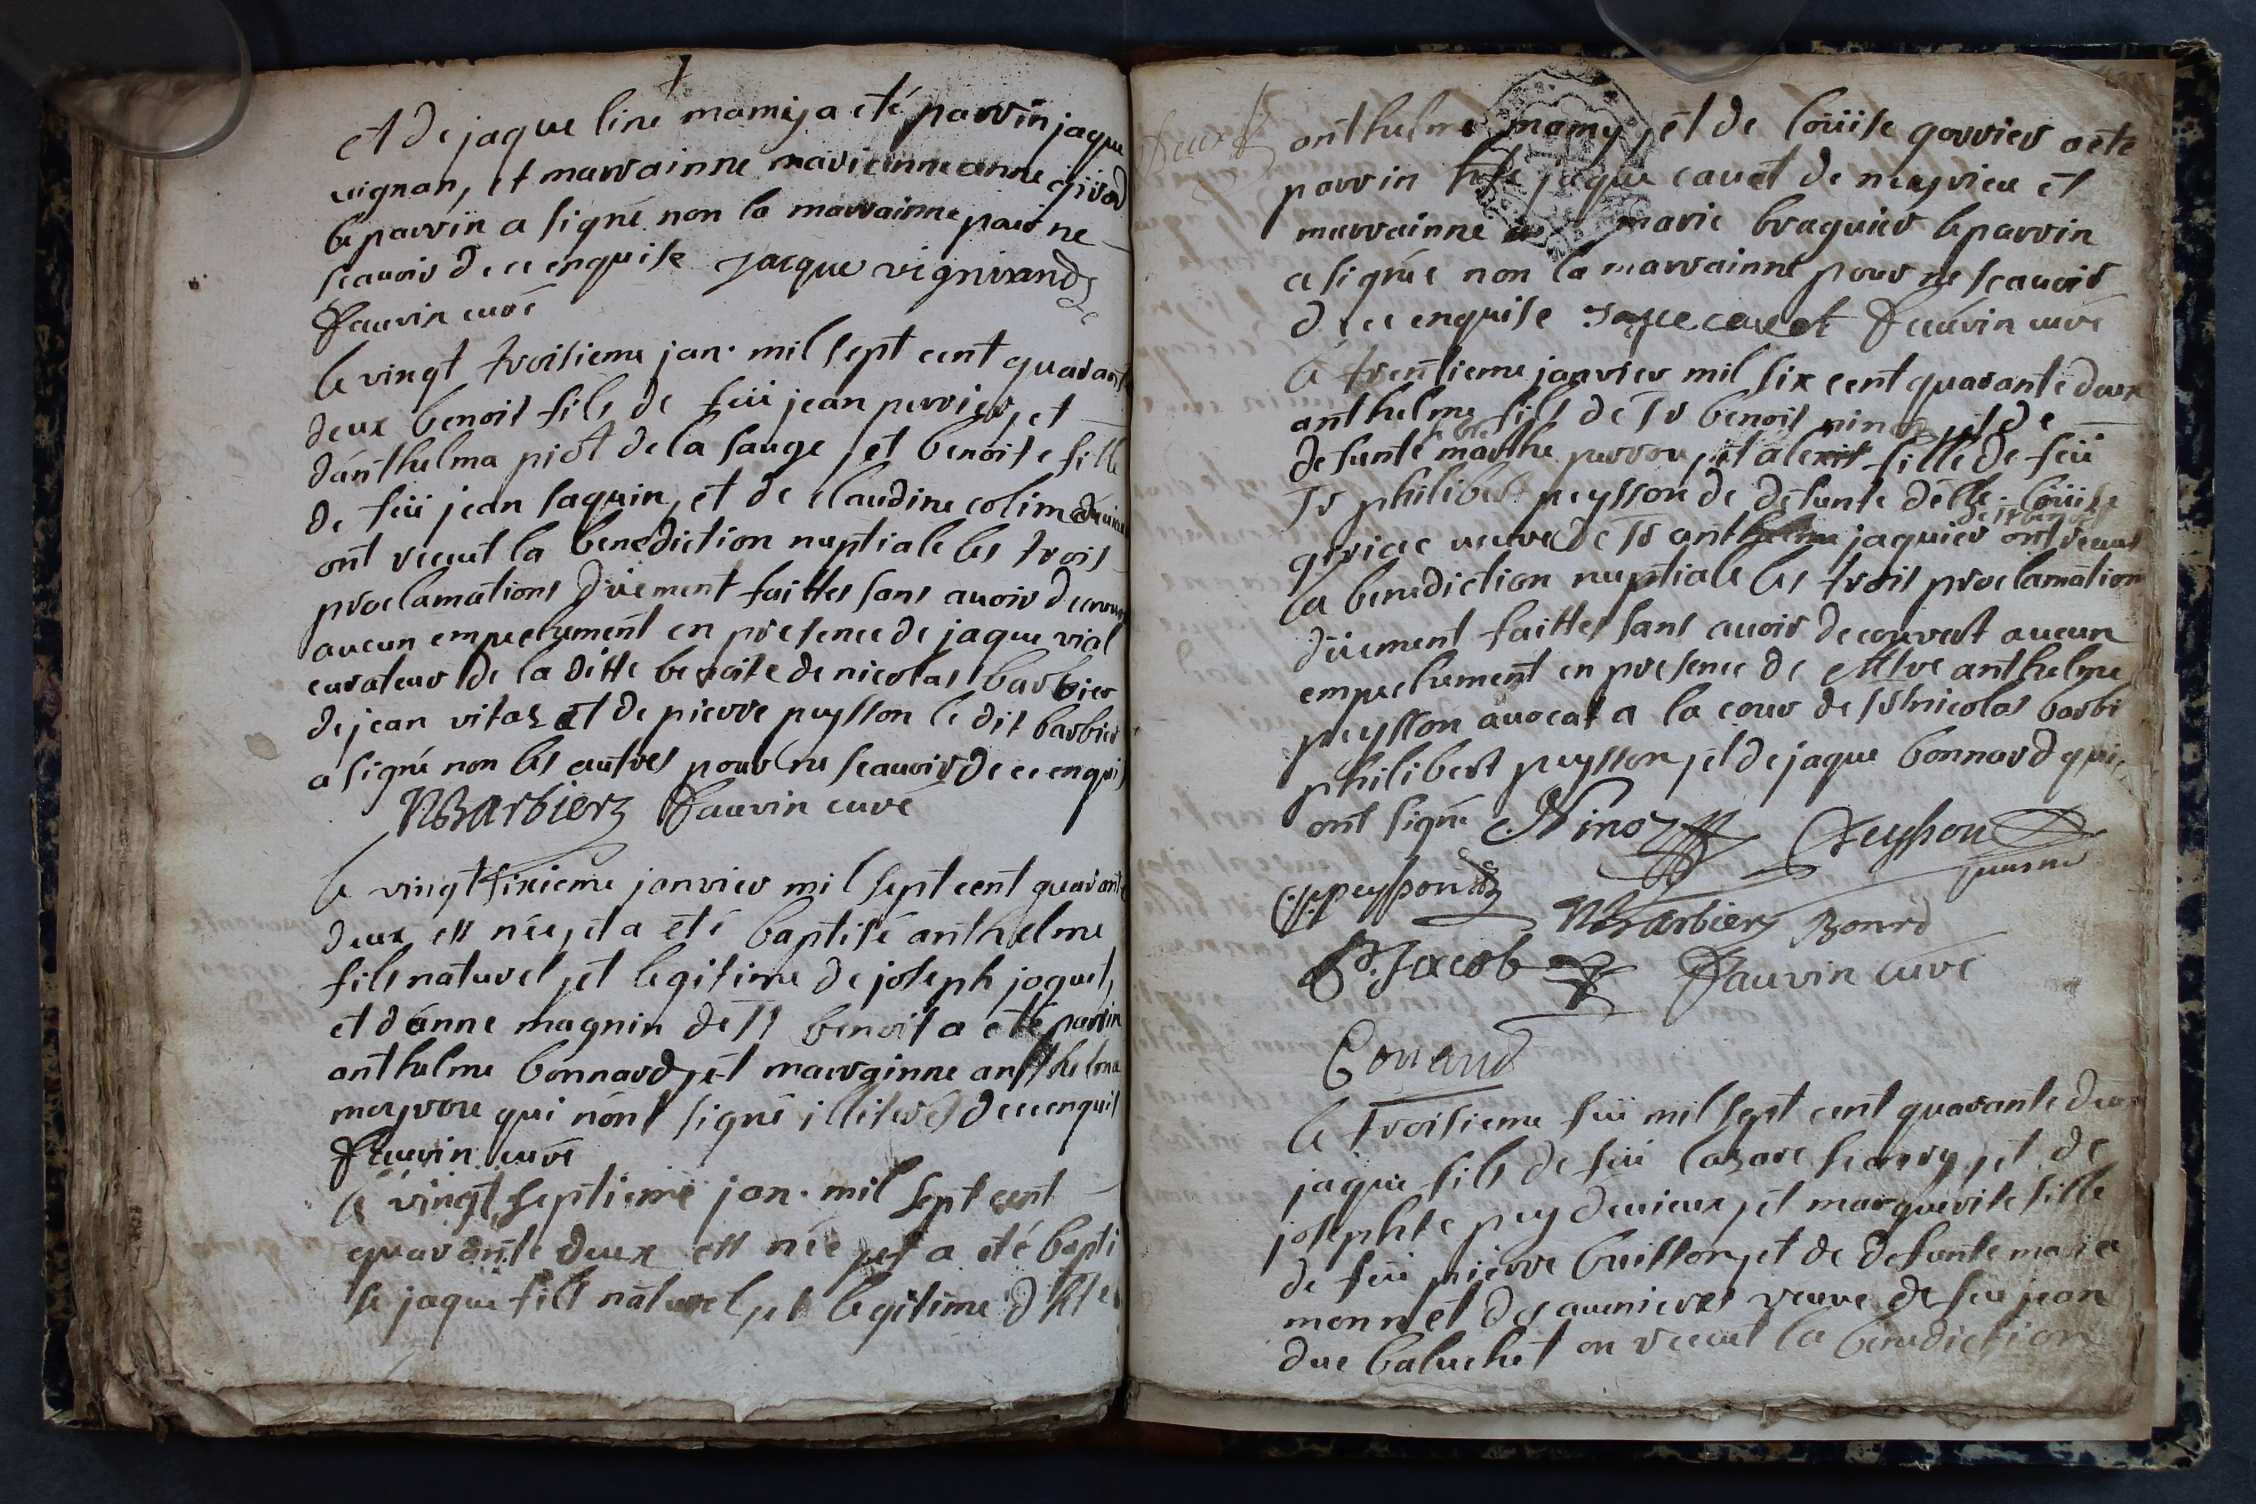 et de jaque line mamy a eté parrin jaque
vignan, et marrainne marieanne anne givord
le parrin a signé non la marrainne pour ne
scavoir de ce enquise jacque vignirand
fauvin curé
le vingt troisieme jan. mil sept cent quarant
deux benoit fils de feü jean perrier, et
d'anthelma piot de la sauge, et benoite fille
de feü jean saquin, et de claudine colim
ont receut la benediction nuptiale les trois
proclamations düement faittes sans avoir decouv
aucun empechement en presence de jaque vial
curateur de la ditte benoite de nicolas barbier
de jean vitaz et de pierre peysson le dit barbier
a signé non les autres pour ne scavoir de ce enquis
NBarbier fauvin curé
le vingt sixieme janvier mil sept cent quarante
deux est née, et a été baptisé anthelme
fils naturel, et legitime de joseph joquet,
et d'anne magnin de st benoit a eté parrin
anthelme bonnard, et marrainne anthelma
meyrou qui n'ont signé illiterés de ce enquis
fauvin curé
le vingt septieme jan. mil sept cent
quarante deux est née, et a eté bapti
sé jaque fils naturel, et legitime d'
anthelme mamy, et de loüise gorrier a eté
parrin jaque cavet de meyrieu et
marrainne marie braguier le parrin
a signée non la marrainne pour ne scavoir
de ce enquise jaque cavet fauvin curé
le trentieme janvier mil six cent quarante deux
anthelme fils de sr benoit ninoz, et de
defunte marthe perrou, et alexit fille de feü
sr philibert peysson de defunte delle. loüise
veuve de sr anthelme jaquier ont receut
la benediction nuptiale les trois proclamation
düement faittes sans avoir decouvert aucun
empechement en presence de Mtre anthelme
peysson avocat a la cour de sr nicolas barbi
philibert peysson, et de jaque bonnard qui
ont signé Ninoz Peysson
peysson NBarbier Bonrd
Jacob fauvin curé
Conand
le troisieme feü mil sept cent quarante deux
jaque fils de feü lazare scarry, et de
josephte puy devieux, et marguerite fille
de feü pierre buisson, et de defunte maria
monnet de saumieres veuve de feu jean
duc baluchet on receut la benediction